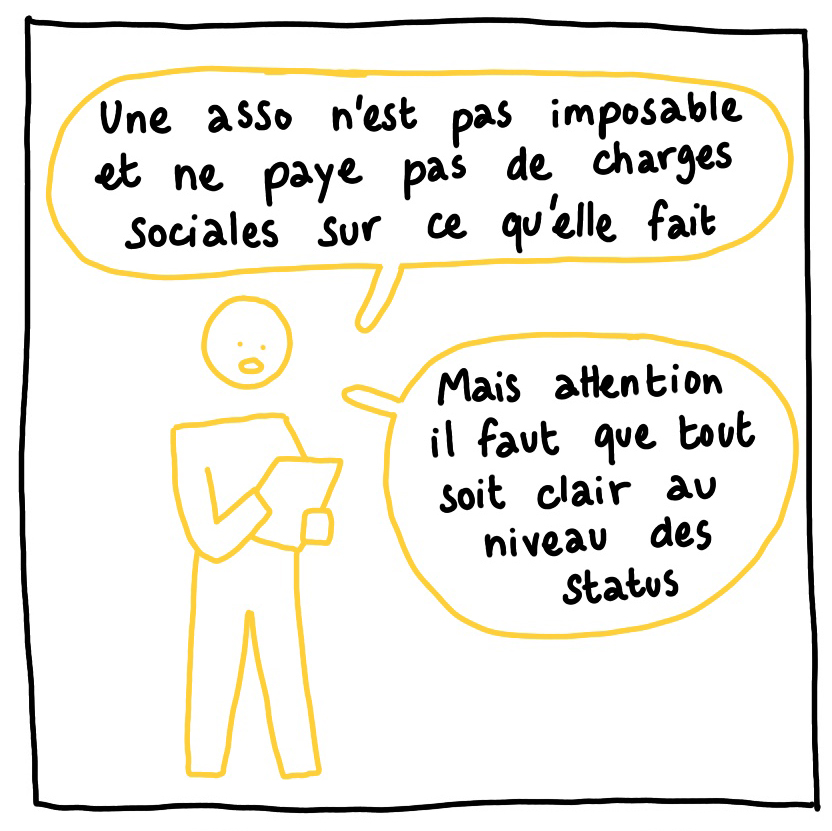 Une asso n'est pas imposable
et ne paye pas de charges
sociales sur ce qu'elle fait
Mais attention
il faut que tout
soit clair au
niveau des
status